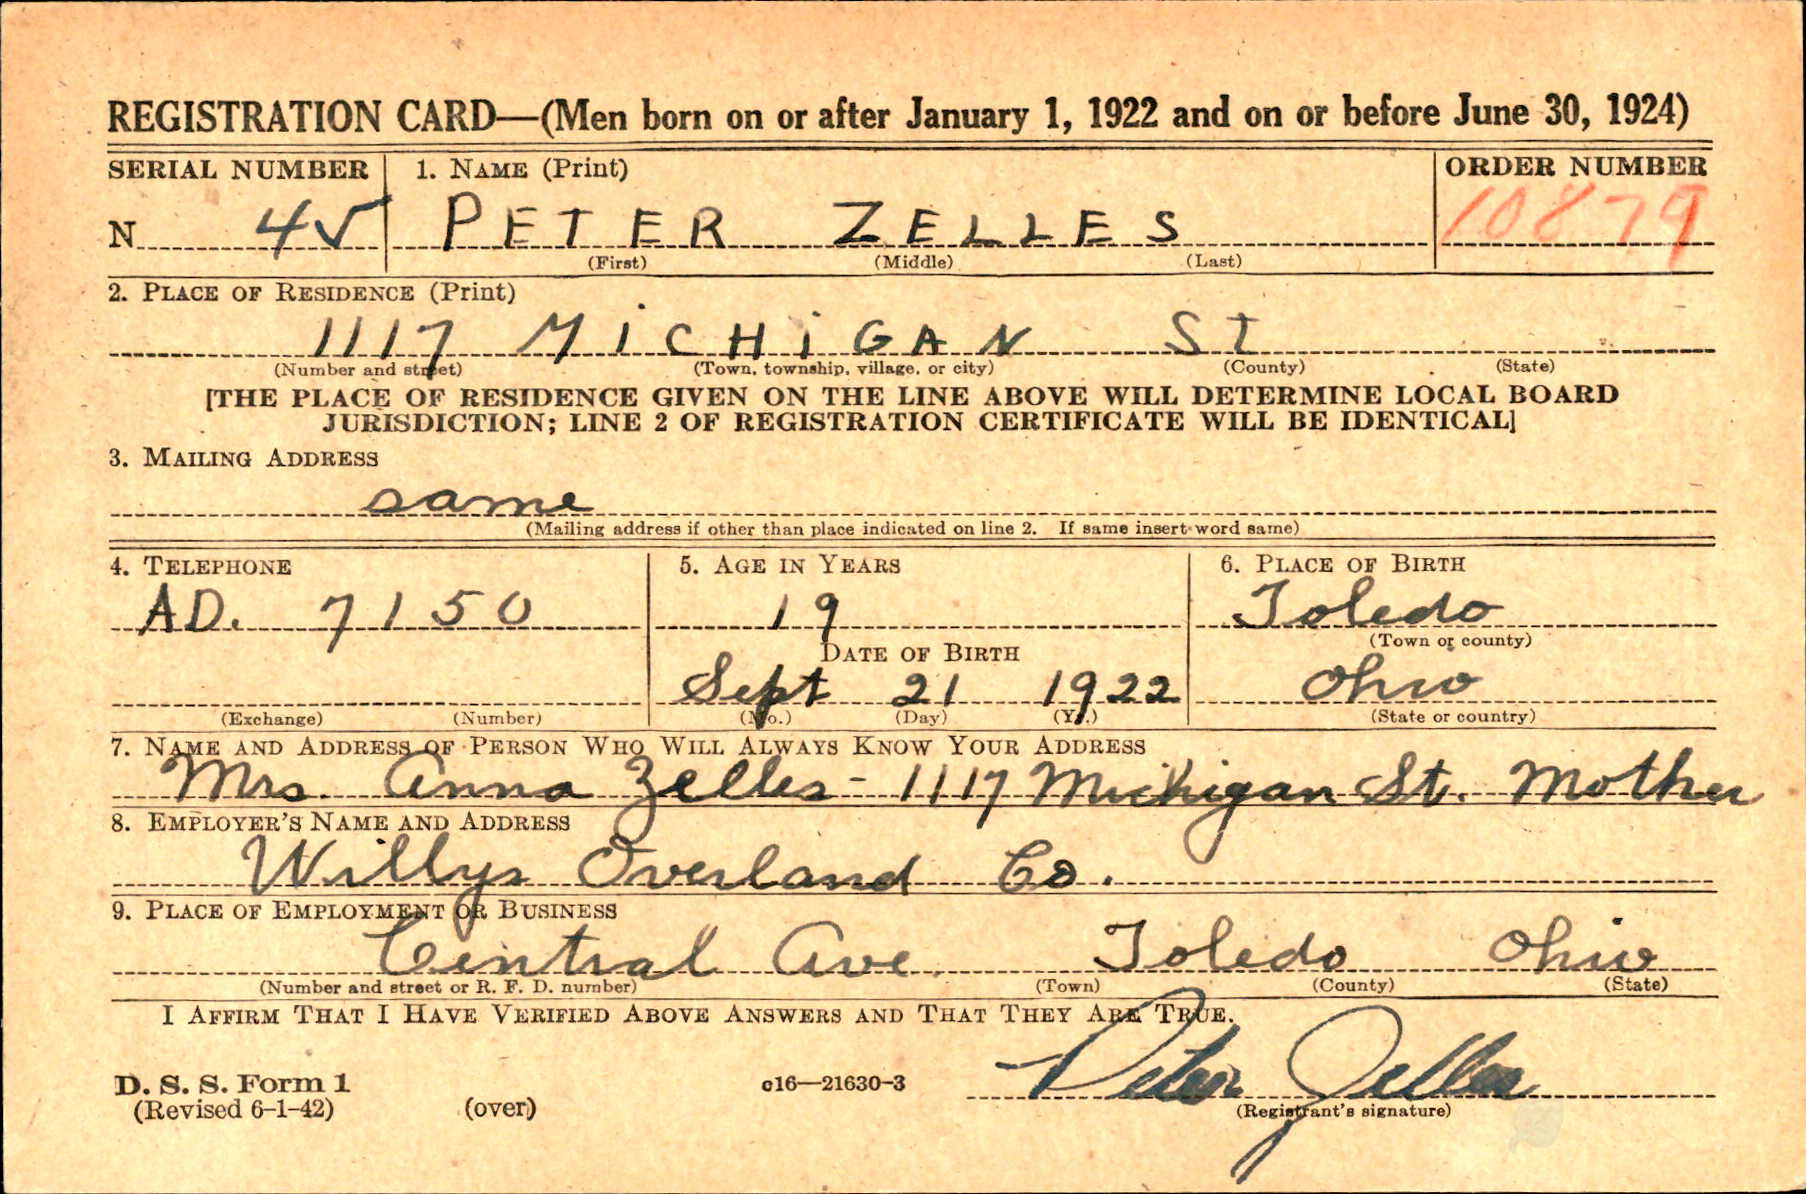 REGISTRATION CARD—(Men born on or after January 1, 1922 and on or before June 30, 1924)
SERIAL NUMBER 1. NAME (Print) ORDER NUMBER
N 45 PETER ZELLES 10879
(First) (Middle) (Last)
2. PLACE OF RESIDENCE (Print)
1117 MiCHiGAN ST
(Number and street) (Town, township, village, or city) (County) (State)
[THE PLACE OF RESIDENCE GIVEN ON THE LINE ABOVE WILL DETERMINE LOCAL BOARD
JURISDICTION; LINE 2 OF REGISTRATION CERTIFICATE WILL BE IDENTICAL]
3. MAILING ADDRESS
same
(Mailing address if other than place indicated on line 2. If same insert word same)
4. TELEPHONE 5. AGE IN YEARS 6. PLACE OF BIRTH
AD. 7150 19 Toledo
DATE OF BIRTH (Town or county)
Sept 21 1922 Ohio
(Exchange) (Number) (Mo.) (Day) (Yr.) (State or country)
7. NAME AND ADDRESS OF PERSON WHO WILL ALWAYS KNOW YOUR ADDRESS
Mrs. Anna Zelles - 1117 Michigan St. Mother
8. EMPLOYER'S NAME AND ADDRESS
Willys Overland Co.
9. PLACE OF EMPLOYMENT OR BUSINESS
Central Ave. Toledo Ohio
(Number and street or R. F. D. number) (Town) (County) (State)
I AFFIRM THAT I HAVE VERIFIED ABOVE ANSWERS AND THAT THEY ARE TRUE.
D. S. S. Form 1 c16—21630-3 Peter Zelles
(Revised 6-1-42) (over) (Registrant's signature)